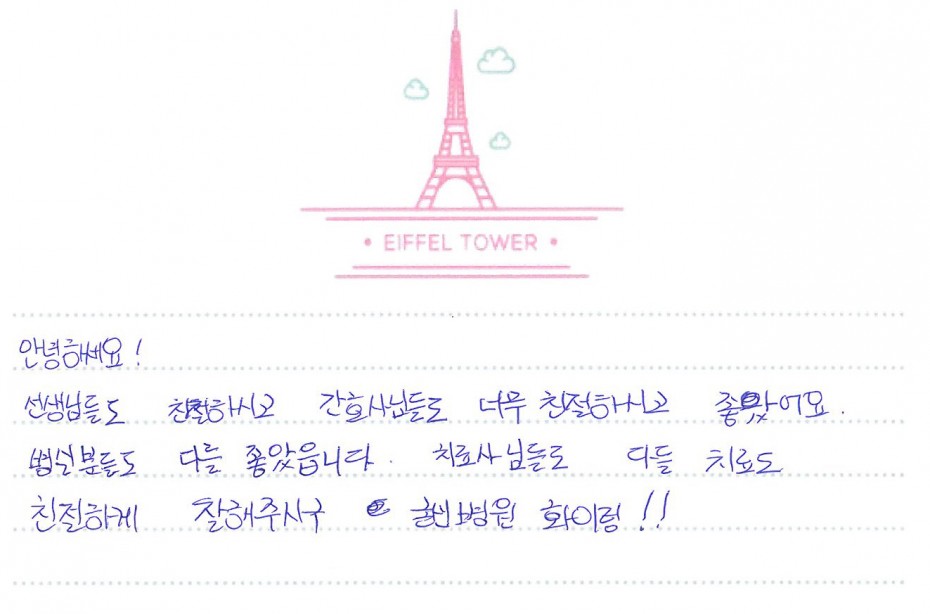 • EIFFEL TOWER •
안녕하세요!
선생님들도 친절하시고 간호사님들도 너무 친절하시고 좋았어요.
병실분들도 다들 좋았읍니다. 치료사님들도 다들 치료도
친절하게 잘해주시구 병원 화이링!!